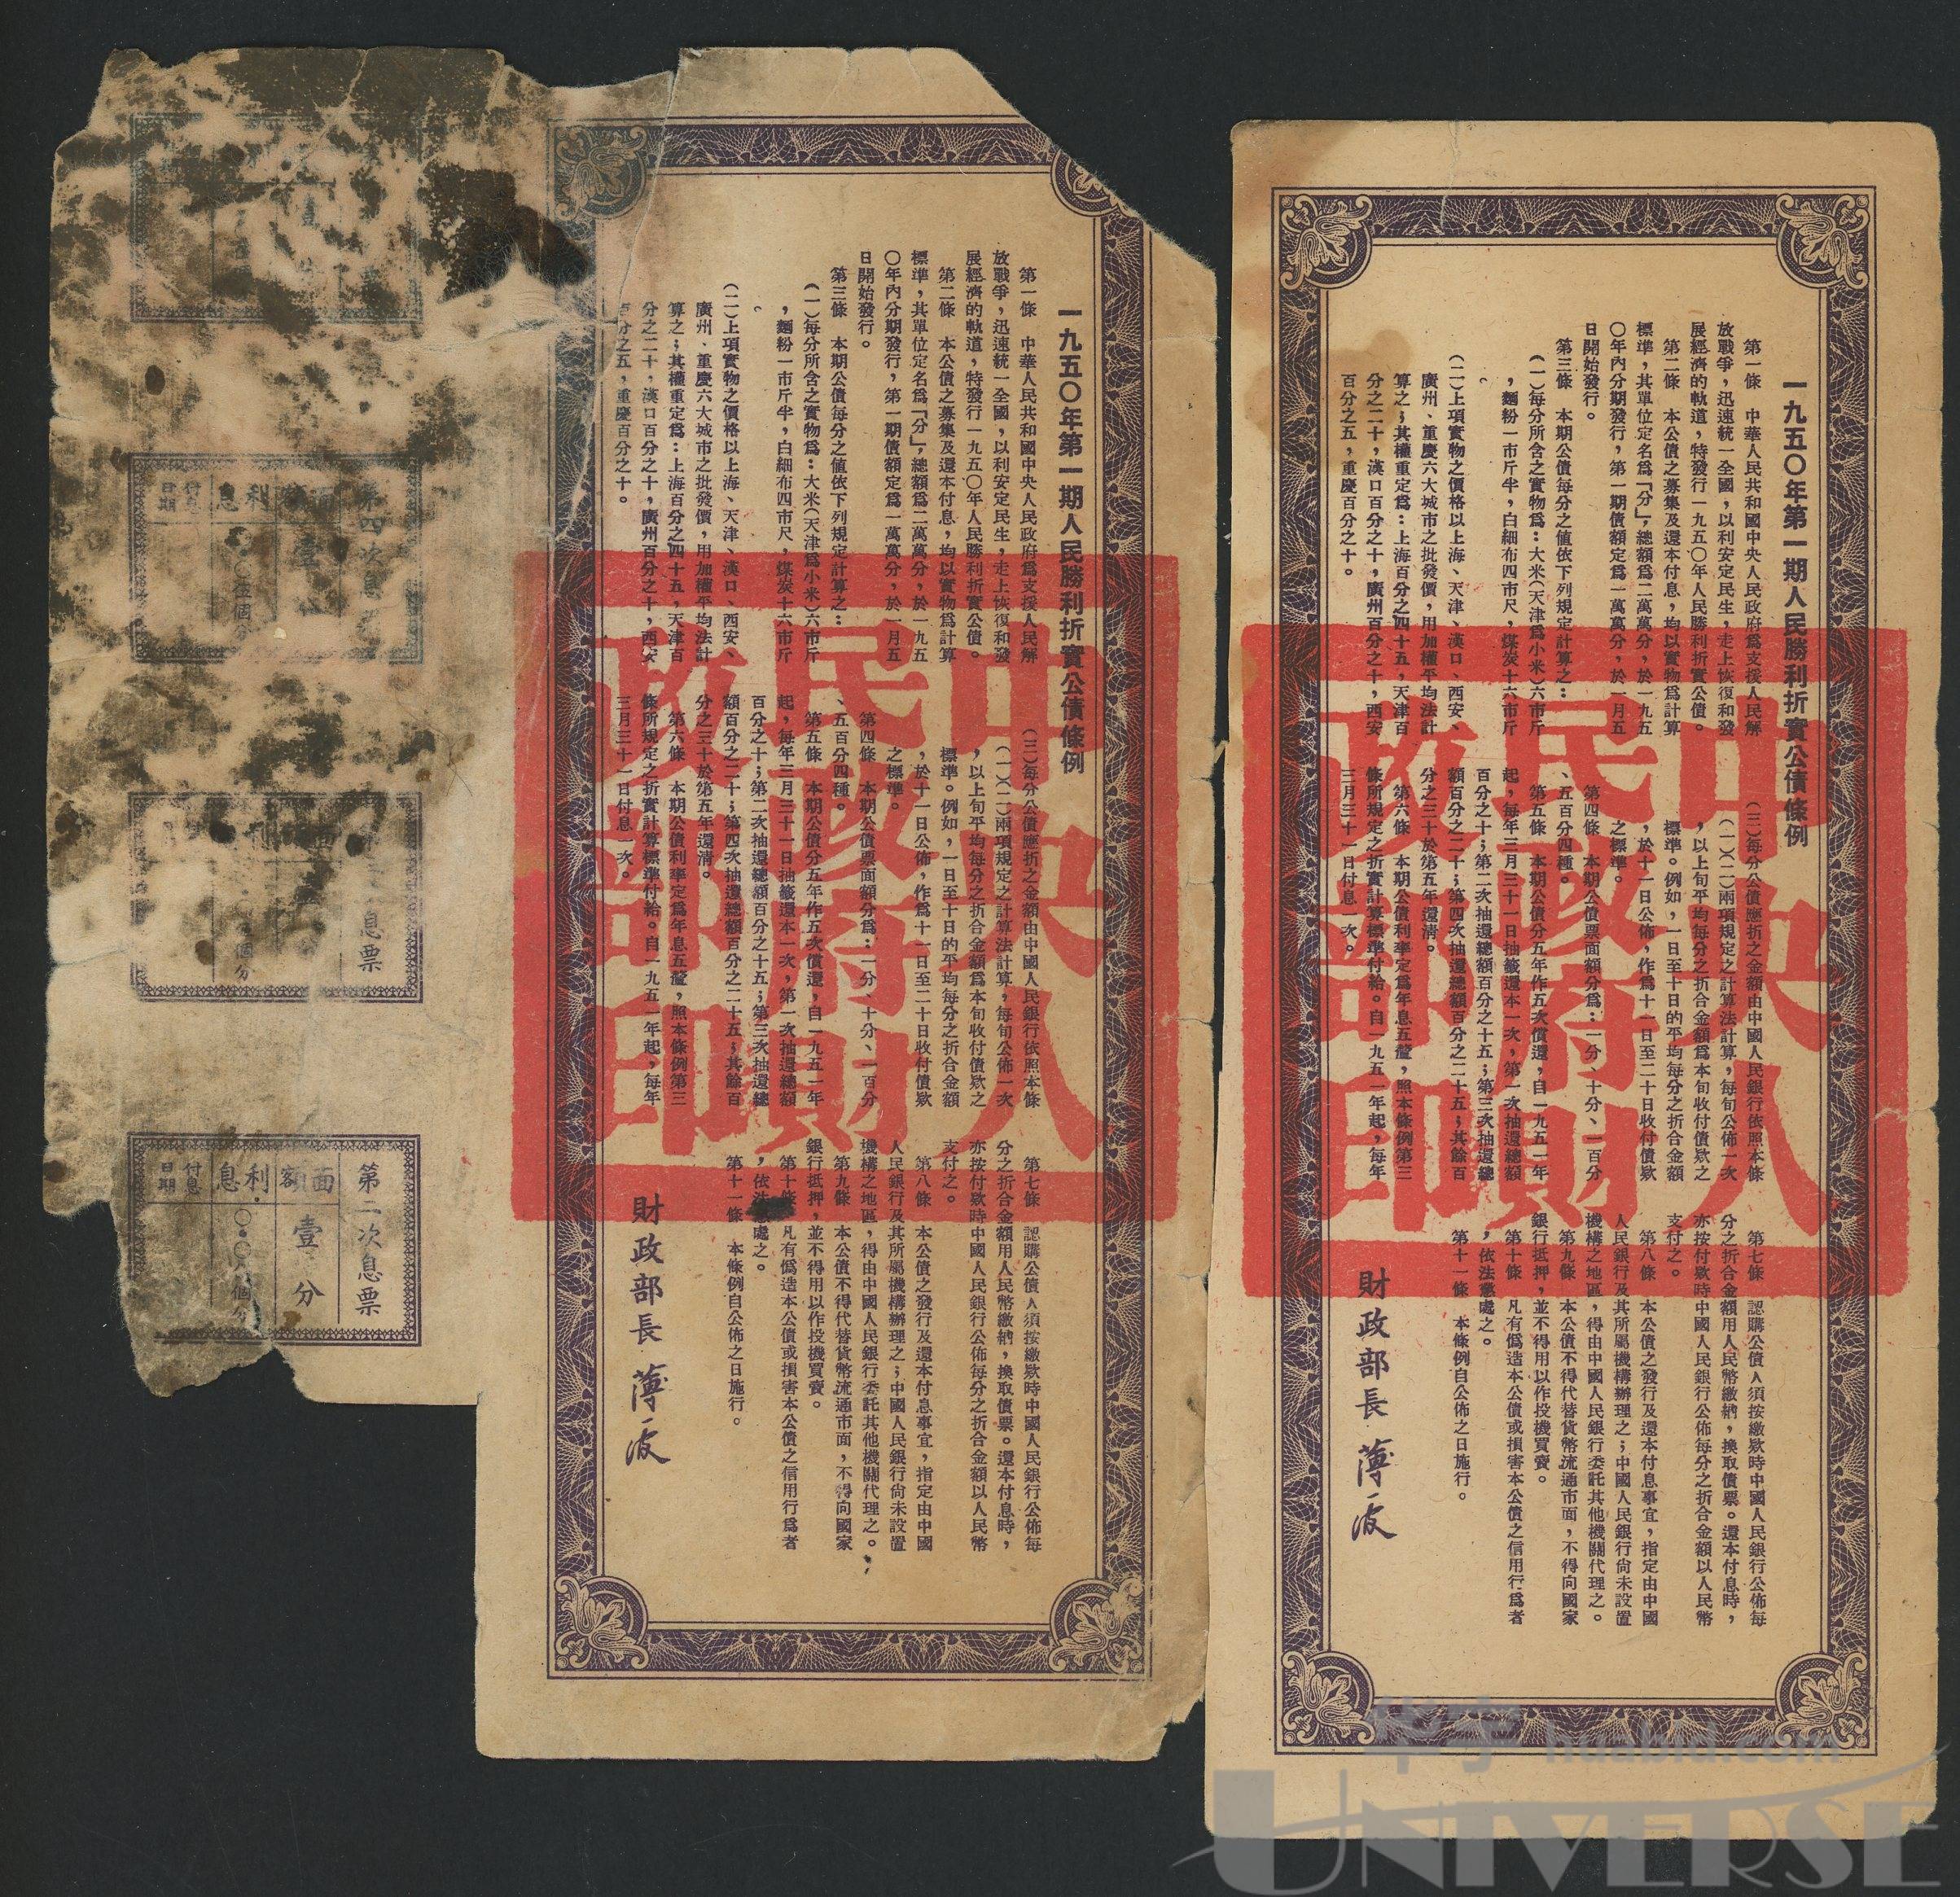 一九五〇年第一期人民勝利折實公債條例
第一條　中華人民共和國中央人民政府爲支援人民解
放戰爭，迅速統一全國，以利安定民生，走上恢復和發
展經濟的軌道，特發行一九五〇年人民勝利折實公債。
第二條　本公債之募集及還本付息，均以實物爲計算
標準，其單位定名爲「分」，總額爲二萬萬分，於一九五
〇年內分期發行，第一期債額定爲一萬萬分，於一月五
日開始發行。
第三條　本期公債每分之值依下列規定計算之：
(一)每分所含之實物爲：大米(天津爲小米)六市斤
，麵粉一市斤半，白細布四市尺，煤炭十六市斤
。
(二)上項實物之價格以上海、天津、漢口、西安、
廣州、重慶六大城市之批發價，用加權平均法計
算之；其權重定爲：上海百分之四十五，天津百
分之二十，漢口百分之十，廣州百分之十，西安
百分之五，重慶百分之十。
(三)每分公債應折之金額由中國人民銀行依照本條
(一)(二)兩項規定之計算法計算，每旬公佈一次
，以上旬平均每分之折合金額爲本旬收付債欵之
標準。例如，一日至十日的平均每分之折合金額
，於十一日公佈，作爲十一日至二十日收付債欵
之標準。
第四條　本期公債票面額分爲：一分、十分、一百分
、五百分四種。
第五條　本期公債分五年作五次償還，自一九五一年
起，每年三月三十一日抽籤還本一次，第一次抽還總額
百分之十；第二次抽還總額百分之十五；第三次抽還總
額百分之二十；第四次抽還總額百分之二十五；其餘百
分之三十於第五年還清。
第六條　本期公債利率定爲年息五釐，照本條例第三
條所規定之折實計算標準付給。自一九五一年起，每年
三月三十一日付息一次。
第七條　認購公債人須按繳欵時中國人民銀行公佈每
分之折合金額用人民幣繳納，換取債票。還本付息時，
亦按付欵時中國人民銀行公佈每分之折合金額以人民幣
支付之。
第八條　本公債之發行及還本付息事宜，指定由中國
人民銀行及其所屬機構辦理之；中國人民銀行尙未設置
機構之地區，得由中國人民銀行委託其他機關代理之。
第九條　本公債不得代替貨幣流通市面，不得向國家
銀行抵押，並不得用以作投機買賣。
第十條　凡有僞造本公債或損害本公債之信用行爲者
，依法懲處之。
第十一條　本條例自公佈之日施行。
財政部長 薄一波
中央人
民政府財
政部印
一九五〇年第一期人民勝利折實公債條例
第一條　中華人民共和國中央人民政府爲支援人民解
放戰爭，迅速統一全國，以利安定民生，走上恢復和發
展經濟的軌道，特發行一九五〇年人民勝利折實公債。
第二條　本公債之募集及還本付息，均以實物爲計算
標準，其單位定名爲「分」，總額爲二萬萬分，於一九五
〇年內分期發行，第一期債額定爲一萬萬分，於一月五
日開始發行。
第三條　本期公債每分之值依下列規定計算之：
(一)每分所含之實物爲：大米(天津爲小米)六市斤
，麵粉一市斤半，白細布四市尺，煤炭十六市斤
。
(二)上項實物之價格以上海、天津、漢口、西安、
廣州、重慶六大城市之批發價，用加權平均法計
算之；其權重定爲：上海百分之四十五，天津百
分之二十，漢口百分之十，廣州百分之十，西安
百分之五，重慶百分之十。
(三)每分公債應折之金額由中國人民銀行依照本條
(一)(二)兩項規定之計算法計算，每旬公佈一次
，以上旬平均每分之折合金額爲本旬收付債欵之
標準。例如，一日至十日的平均每分之折合金額
，於十一日公佈，作爲十一日至二十日收付債欵
之標準。
第四條　本期公債票面額分爲：一分、十分、一百分
、五百分四種。
第五條　本期公債分五年作五次償還，自一九五一年
起，每年三月三十一日抽籤還本一次，第一次抽還總額
百分之十；第二次抽還總額百分之十五；第三次抽還總
額百分之二十；第四次抽還總額百分之二十五；其餘百
分之三十於第五年還清。
第六條　本期公債利率定爲年息五釐，照本條例第三
條所規定之折實計算標準付給。自一九五一年起，每年
三月三十一日付息一次。
第七條　認購公債人須按繳欵時中國人民銀行公佈每
分之折合金額用人民幣繳納，換取債票。還本付息時，
亦按付欵時中國人民銀行公佈每分之折合金額以人民幣
支付之。
第八條　本公債之發行及還本付息事宜，指定由中國
人民銀行及其所屬機構辦理之；中國人民銀行尙未設置
機構之地區，得由中國人民銀行委託其他機關代理之。
第九條　本公債不得代替貨幣流通市面，不得向國家
銀行抵押，並不得用以作投機買賣。
第十條　凡有僞造本公債或損害本公債之信用行爲者
，依法處之。
第十一條　本條例自公佈之日施行。
財政部長 薄一波
中央人
民政府財
政部印
第四次息
面額 壹
利息 伍個分
付息日期
息票
個分
第二次息票
面額 壹分
利息 〇·〇 個分
付息日期
华宇 huabid.com
UNIVERSE